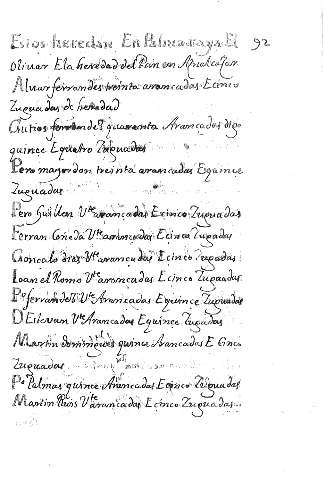 Estos heredan En Palmaraya El 92
olivar E la heredad del Pan en Aznalcazar
Aluar ferrandes treinta arancadas E cinco
Zuguadas de heredad
Gutios ferrandes quarenta Arancadas digo
quince E quatro Zuguadas
Pero mayordon treinta arancadas E quince
Zuguadas
Pero Guillen Vte arancadas E cinco Zuguadas
Ferran Coneda Vte arancadas E cinco Zuguadas
Goncalo dies Vte arancadas E cinco Zuguadas
Loan el Romo Vte arancadas E cinco Zuguadas
Po ferrandes Vte Arancadas E quince Zuguadas
D Estevan Vte Arancadas E quince Zuguadas
Martin domingues quince Arancadas E Cinco
Zuguadas
Po Palmas quince Arancadas E cinco Zuguadas
Martin Ruis Vte arancadas E cinco Zuguadas